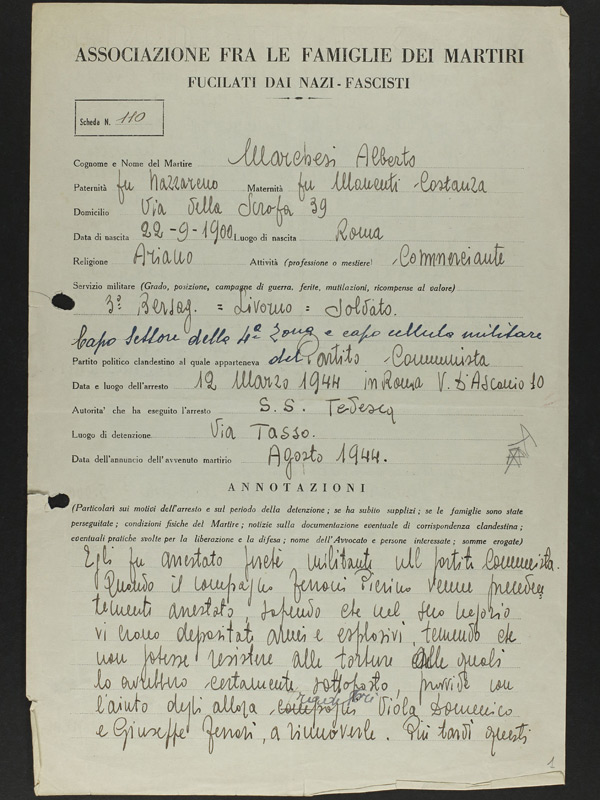 ASSOCIAZIONE FRA LE FAMIGLIE DEI MARTIRI
FUCILATI DAI NAZI-FASCISTI
Scheda N. 110
Cognome e Nome del Martire Marchesi Alberto
Paternità fu Nazzareno Maternità fu Manenti Costanza
Domicilio Via della Scrofa 39
Data di nascita 22-9-1900 Luogo di nascita Roma
Religione Ariano Attività (professione o mestiere) Commerciante
Servizio militare (Grado, posizione, campagne di guerra, ferite, mutilazioni, ricompense al valore)
3º Bersag. = Livorno = Soldato.
Capo Settore della 4ª Zona e capo cellula militare
Partito politico clandestino al quale apparteneva del Partito Communista
Data e luogo dell'arresto 12 Marzo 1944 in Roma V. D'Ascanio 10
Autorita' che ha eseguito l'arresto S.S. Tedesca
Luogo di detenzione Via Tasso.
Data dell'annuncio dell'avvenuto martirio Agosto 1944.
ANNOTAZIONI
(Particolari sui motivi dell'arresto e sul periodo della detenzione; se ha subito supplizi; se le famiglie sono state
perseguitate; condizioni fisiche del Martire; notizie sulla documentazione eventuale di corrispondenza clandestina;
eventuali pratiche svolte per la liberazione e la difesa; nome dell'Avvocato e persone interessate; somme erogate)
Egli fu arrestato perchè militante nel partito Communista.
Quando il compagno Ferrari Pierino venne preceden
temente arrestato, sapendo che nel suo negozio
vi erano depositati armi e esplosivi, temendo che
non potesse resistere alle torture alle quali
lo avrebbero certamente sottoposto, provvide con
l'aiuto degli allora Viola Domenico
e Giuseppe Ferrari, a rimuoverle. Più tardi questi
1